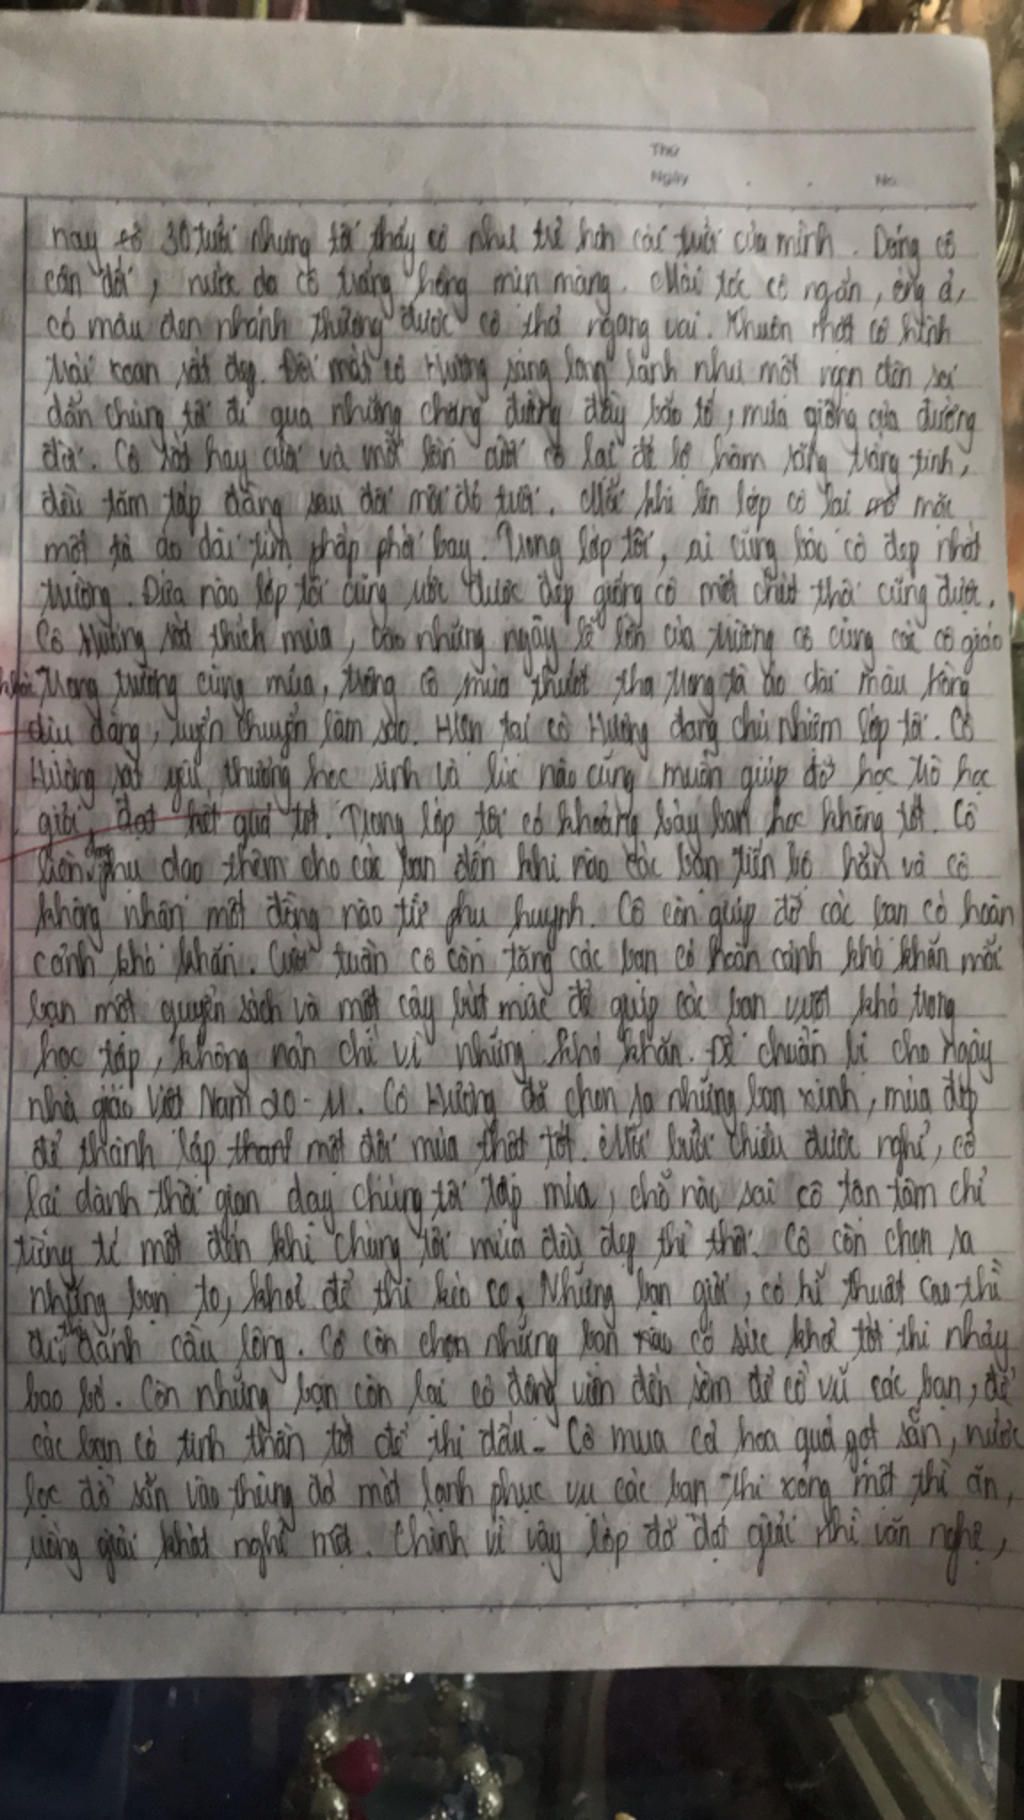 Thứ
Ngày . . No.
nay cô 30 tuổi nhưng tôi thấy cô như trẻ hơn cái tuổi của mình. Dáng cô
cân đối, nước da cô trắng hồng mịn màng. Mái tóc cô ngắn, óng ả,
có màu đen nhánh thường được cô thả ngang vai. Khuôn mặt cô hình
trái xoan rất đẹp. Đôi mắt cô Hương sáng long lanh như một ngọn đèn soi
dẫn chúng tôi đi qua những chặng đường đầy bão tố, mưa giông của đường
đời. Cô rất hay cười và mỗi lần cười cô lại để lộ hàm răng trắng tinh,
đều tăm tắp đằng sau đôi môi đỏ tươi. Mỗi khi lên lớp cô lại mặc
một tà áo dài tím phấp phới bay. Trong lớp tôi, ai cũng bảo cô đẹp nhất
trường. Đứa nào lớp tôi cũng ước được đẹp giống cô một chút thôi cũng được.
Cô Hương rất thích múa, vào những ngày lễ lớn của trường cô cùng các cô giáo
trong trường cùng múa, trông cô múa thướt tha trong tà áo dài màu hồng
dịu dàng, uyển chuyển làm sao. Hiện tại cô Hương đang chủ nhiệm lớp tôi. Cô
Hương rất yêu thương học sinh và lúc nào cũng muốn giúp đỡ học trò học
giỏi, đạt kết quả tốt. Trong lớp tôi có khoảng bảy bạn học không tốt. Cô
liền phụ đạo thêm cho các bạn đến khi nào các bạn tiến bộ hẳn và cô
không nhận một đồng nào từ phụ huynh. Cô còn giúp đỡ các bạn có hoàn
cảnh khó khăn. Cuối tuần cô còn tặng các bạn có hoàn cảnh khó khăn mỗi
bạn một quyển sách và một cây bút mực để giúp các bạn vượt khó trong
học tập, không nản chí vì những khó khăn. Để chuẩn bị cho ngày
nhà giáo Việt Nam 20-11. Cô Hương đã chọn ra những bạn xinh, múa đẹp
để thành lập một đội múa thật tốt. Mỗi buổi chiều được nghỉ, cô
lại dành thời gian dạy chúng tôi tập múa, chỗ nào sai cô tận tâm chỉ
từng tí một đến khi chúng tôi múa đều đẹp thì thôi. Cô còn chọn ra
những bạn to, khoẻ để thi kéo co. Những bạn giỏi, có kĩ thuật cao thì
đi thi đánh cầu lông. Cô còn chọn những bạn nào có sức khoẻ tốt thi nhảy
bao bố. Còn những bạn còn lại cô động viên đến sớm để cổ vũ các bạn, để
các bạn có tinh thần tốt để thi đấu. Cô mua cả hoa quả gọt sẵn, nước
lọc để sẵn vào thùng đá mát lạnh phục vụ các bạn thi xong mệt thì ăn,
uống giải khát nghỉ mệt. Chính vì vậy lớp đã đạt giải nhì văn nghệ,